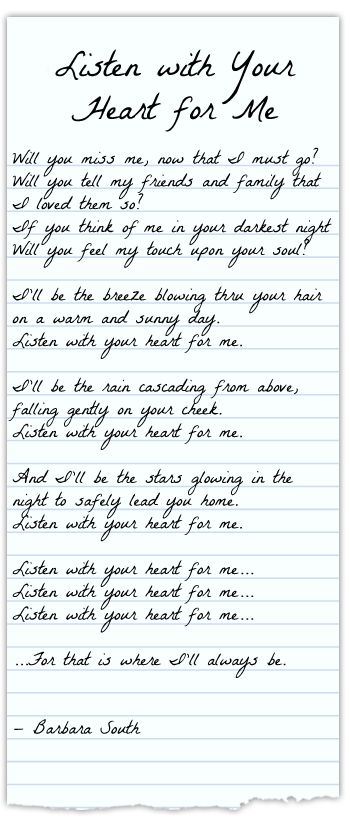 Listen with Your
Heart for Me
Will you miss me, now that I must go?
Will you tell my friends and family that
I loved them so?
If you think of me in your darkest night
Will you feel my touch upon your soul?
I'll be the breeze blowing thru your hair
on a warm and sunny day.
Listen with your heart for me.
I'll be the rain cascading from above,
falling gently on your cheek.
Listen with your heart for me.
And I'll be the stars glowing in the
night to safely lead you home.
Listen with your heart for me.
Listen with your heart for me...
Listen with your heart for me...
Listen with your heart for me...
...For that is where I'll always be.
- Barbara South